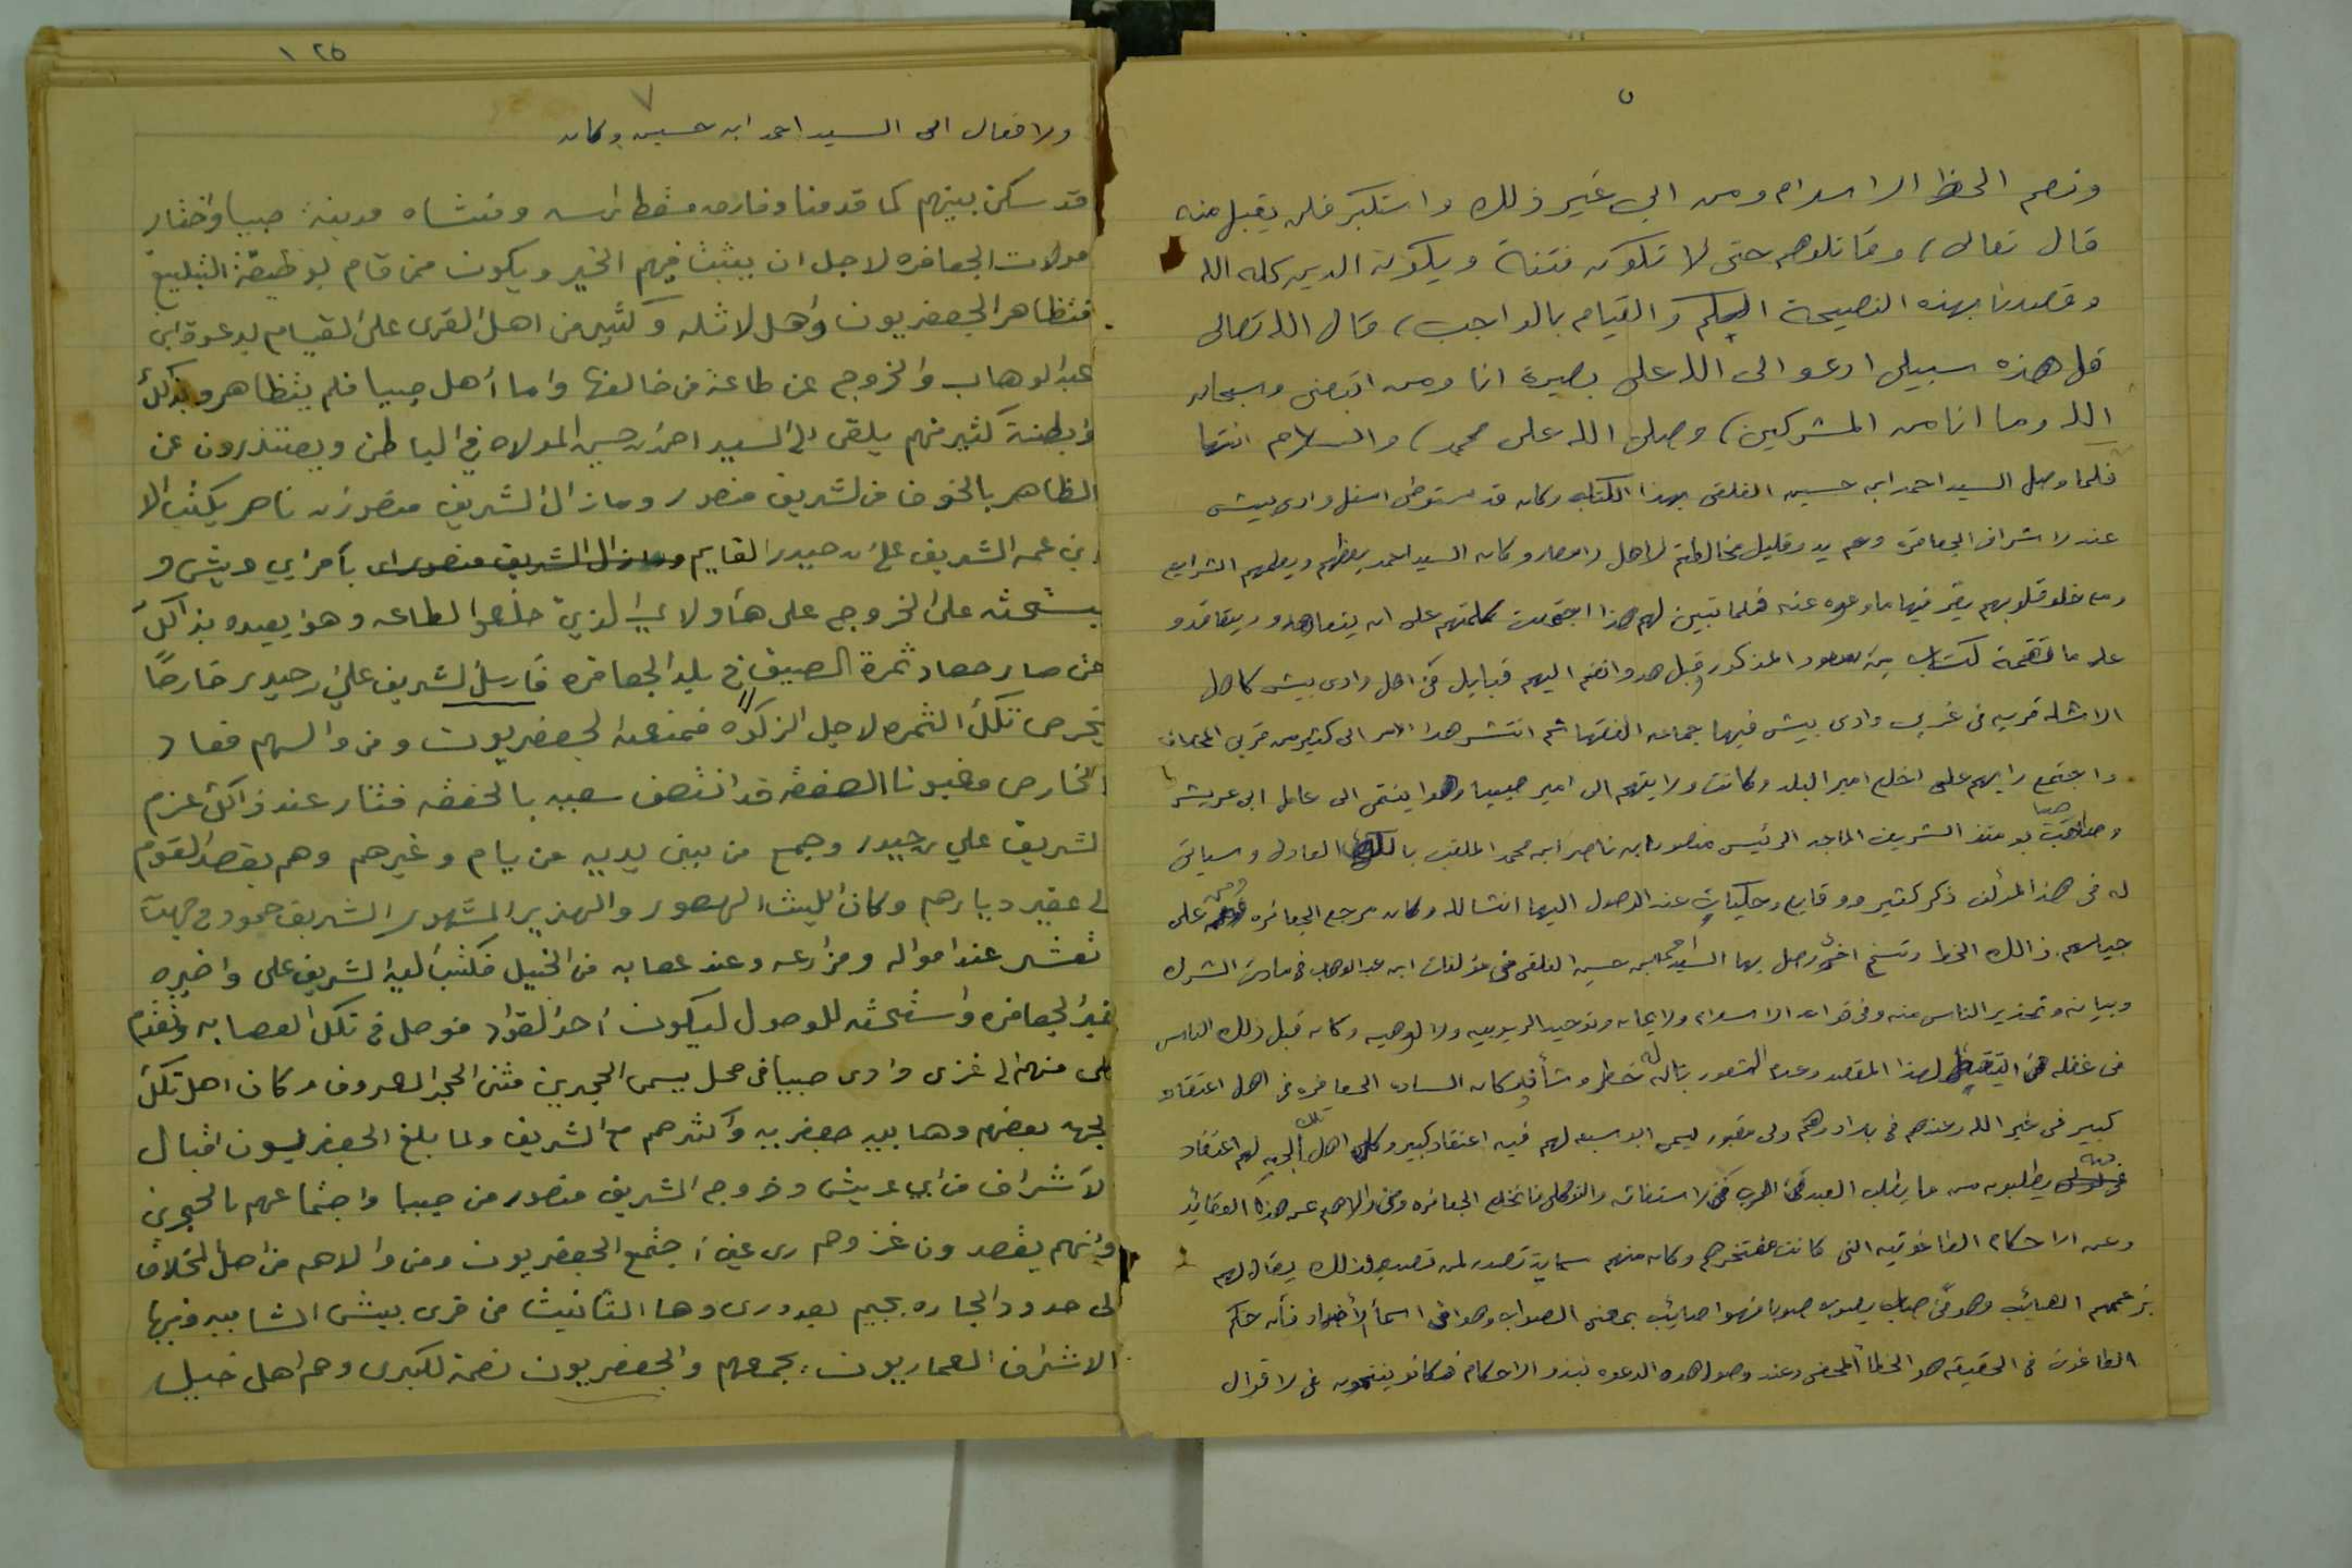 ٥
ونصم الحظ الاسلام ومن ابى غير ذلك واستكبر فلن يقبل منه
قال تعالى، وقاتلوهم حتى لا تكون فتنة ويكون الدين كله الله
وقصدنا بهذه النصيحة اليكم والقيام بالواجب، قال الله تعالى
قل هذه سبيلي ادعو الى الله على بصيرة انا ومن اتبعني وسبحان
الله وما انا من المشركين، وصلى الله على محمد، والسلام انتها
فلما وصل السيد احمد ابن حسين الفلقى بهذا الكتاب وكان قد استوطن اسفل وادى بيش
عند لاشراف الجعافره وهم بدو قليل مخالطتهم لاهل الامصار وكان السيد احمد يعظهم ويعلمهم الشرايع
ومن خلو قلوبهم يقر فيها ما وعوه عنه فلما تبين لهم هذا اجتمعت كلمتهم على ان يتعاهدو ويتعاقدو
على ما تضمنه كتاب بن سعود المذكور قبل هدو وانضم اليهم قبايل من اهل وادى بيش كاهل
الاثله قريه في غربي وادى بيش فيها جماعه الفقها ثم انتشر هذا الامر الى كثير من قرى المخلاف
واجتمع رايهم على اخلاع امير البلد وكانت ولايتهم الى امير صبيا وهوا ينتمي الى عامل ابى عريش
وصاحب صبيا يومئذ الشريف الماجد الرئيس منصور ابن ناصر ابن محمد الملقب بالملك العادل وسياتى
له في هذا المؤلف ذكر كثير ووقايع وحكيات عند الوصول اليها انشالله وكان مرجع الجعافره على
ذالك الخط ونسخ اخرى وصل بها السيد احمد ابن حسين الفلقى من مؤلفات ابن عبد الوهاب في مادت الشرك
وبيانه وتحذير الناس منه وفي قواعد الاسلام ولايمان وتوحيد الربوبيه ولالوهيه وكان قبل ذلك الناس
في غفله عن التيقظ لهذا المقصد وعدم الشعور بتاله خطر وشأن كان الساده الجعافره من اهل اعتقاد
كبير في غير الله وعندهم في بلادهم ولى مقبور يسمى ابو سبعه لهم فيه اعتقاد كبير وكل اهل تلك الجهه لهم اعتقاد
فيه يطلبون منه ما يطلب العبد من الرب من الاستغاثه والتوكل فانخلع الجعافره ومن والاهم عن هذه العقايد
وعن الاحكام الطاغوتيه التي كانت مفتخرهم وكان منهم تصدر لمن تصدى لذلك يقال لهم
بزعمهم الصائب وهو من صاب يصوب صوبا فهوا صايب بمعنى الصواب وهوا في اسماء الاضداد فأنه حكم
الطاغوت في الحقيقه هو الخطأ المحض وعند وصول هذه الدعوه نبذو الاحكام فكانو ينتمون في لاقوال
١٢٥
٧
ولافعال الى السيد احمد ابن حسين وكان
قد سكن بينهم كما قدمنا وفارق مسقط رأسه ومنشاه مدينة صبيا واختار
مولات الجعافره لاجل ان يبثبث فيهم الخير ويكون ممن قام بوظيفة التبليغ
فتظاهر الجعفريون واهل لاثله وكثير من اهل القرى على القيام بدعوة ابن
عبدالوهاب والخروج عن طاعة من خالفها واما أهل صبيا فلم يتظاهرو بذلك
وابطنة كثير منهم يلقى الى السيد احمد بن حسين المولاه في الباطن ويعتذرون عن
الظاهر بالخوف من الشريف منصور ومازال الشريف منصور بن ناصر يكتب الا
ابن عمه الشريف علي بن حيدر القايم بأمر ابي عريش و
يستحثه على الخروج على هأولاي الذين خلعوا الطاعه وهو يعده بذالك
حتى صار حصاد ثمرة الصيف في بلد الجعافره فارسل الشريف علي بن حيدر خارصًا
يخرص تلك الثمره لاجل الزكوه فمنعه الجعفريون ومن والهم فعاد
الخارص مغبونا الصفقه قد انتصف سعيه بالخفقه فثار عند ذالك عزم
الشريف علي بن حيدر وجمع من بين يديه من يام وغيرهم وهم بقصد القوم
الى عقير ديارهم وكان الليث الهصور والهزبر المشهور الشريف حمود في جهت
تعشر عند امواله ومزارعه وعنده عصابه من الخيل فكتب اليه الشريف علي واخبره
خبر الجعافره واستحثه للوصول ليكون أحد القواد فوصل في تلك العصابه وتقدم
على منهم الى غزى وادى صبيا في محل يسمى الحجرين مثنى الحجر المعروف وكان اهل تلك
الجهه بعضهم وهابيه جعفريه وأكثرهم مع الشريف ولما بلغ الجعفريون اقبال
لآشراف من ابي عريش وخروج الشريف منصور من صبيا واجتماعهم بالحجرين
وأنهم يقصدون غزوهم اجتمع الجعفريون ومن والاهم من اهل المخلاف
الى حدود الجاره بجيم بعد ورى وها التأنيث من قرى بيش الشاميه وفيها
الاشراف العماريون بجمعهم والجعفريون نصمة لكبرى وهم اهل خيل